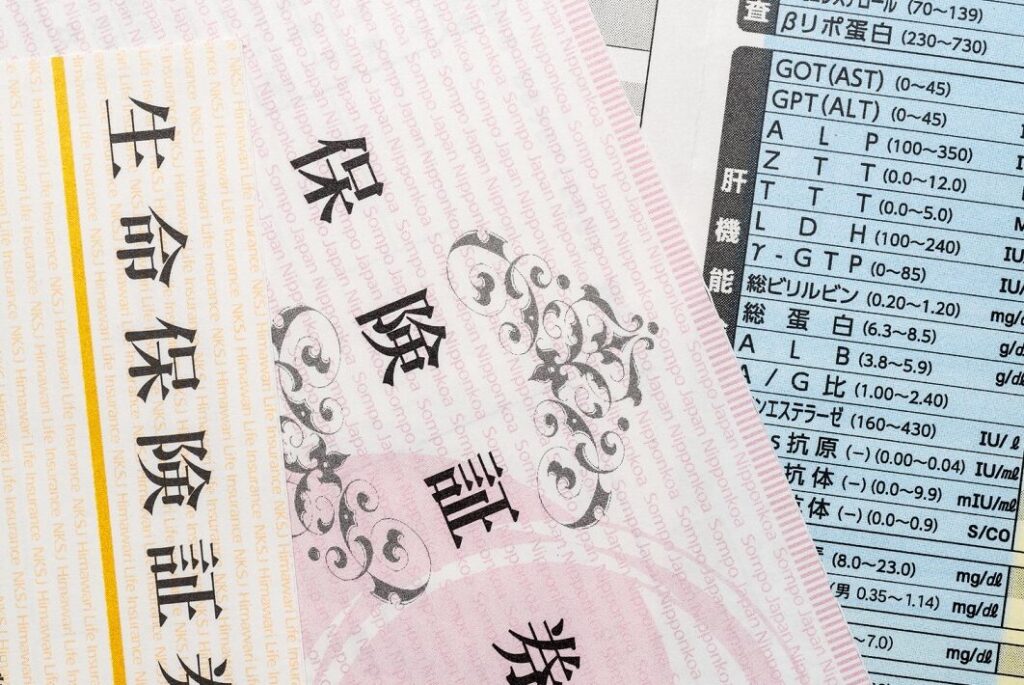 生命保険証
NKSJ Himawari Life Insurance
保険証券
Sompo Japan Nipponkoa
査
(70~139)
βリポ蛋白 (230~730)
肝機能
GOT(AST) (0~45)
GPT(ALT) (0~45)
ALP (100~350)
ZTT (0.0~12.0)
TTT (0.0~5.0)
LDH (100~240) IU/
γ-GTP (0~85) IU/
総ビリルビン (0.20~1.20) mg/
総蛋白 (6.3~8.5) g/d
ALB (3.8~5.9) g/dl
A/G比 (1.00~2.40)
ンエステラーゼ (160~430) IU/ℓ
S抗原 (−) (0.00~0.04) IU/mℓ
抗体 (−) (0.0~9.9) mIU/mℓ
体 (−) (0.0~0.9) S/CO
(8.0~23.0) mg/dℓ
(男 0.35~1.14) mg/dℓ
~7.0) mg/dℓ